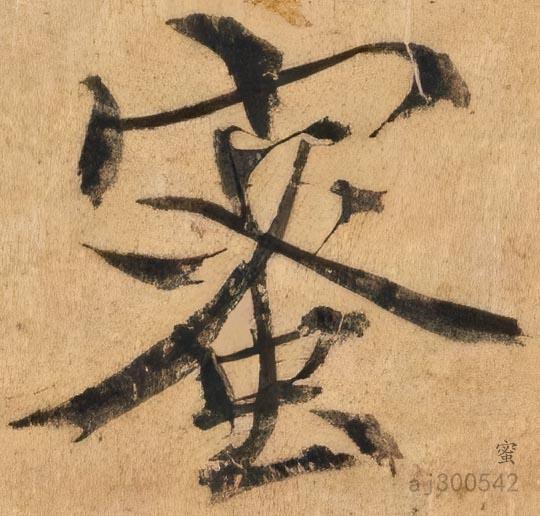 蜜
蜜
aj300542